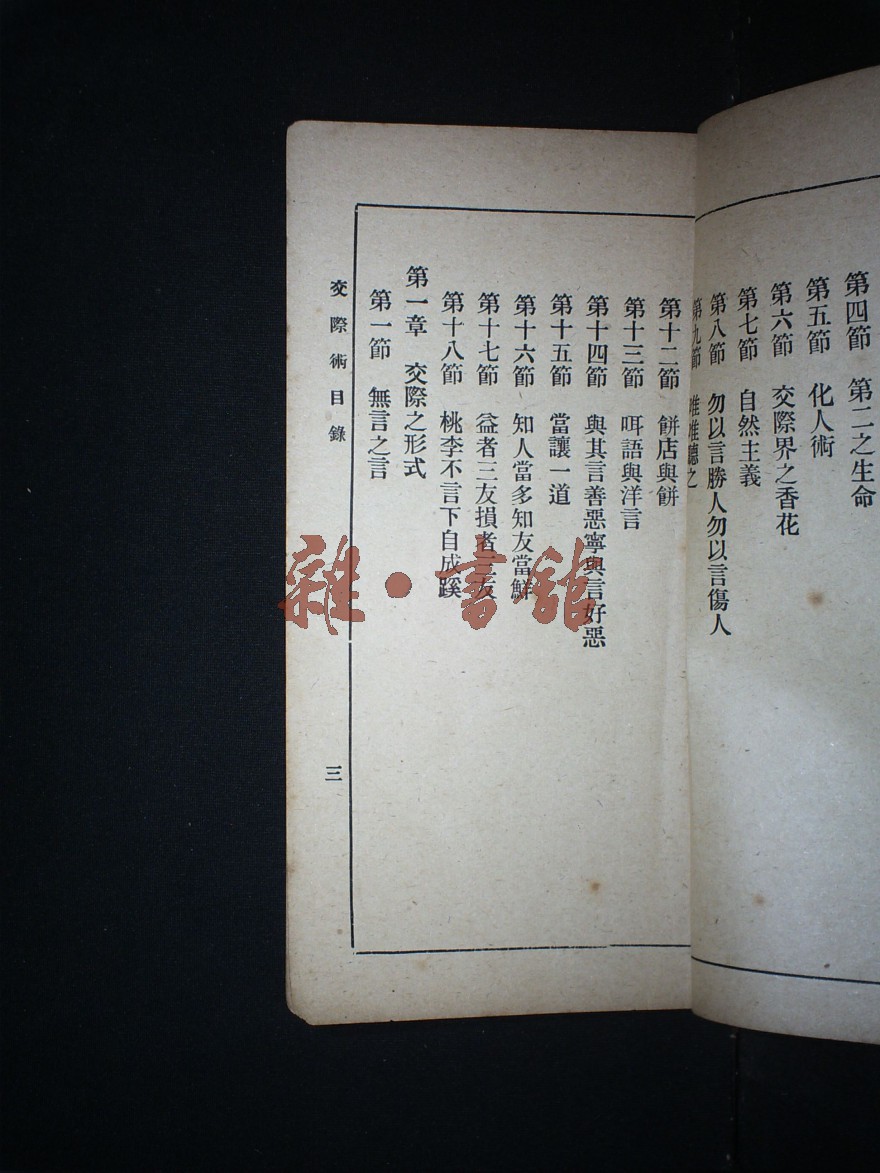 第四節　第二之生命
第五節　化人術
第六節　交際界之香花
第七節　自然主義
第八節　勿以言勝人勿以言傷人
第九節　唯唯聽之
第十二節　餅店與餅
第十三節　呃語與洋言
第十四節　與其言善惡寧與言好惡
第十五節　當讓一道
第十六節　知人當多知友當鮮
第十七節　益者三友損者三友
第十八節　桃李不言下自成蹊
第一章　交際之形式
第一節　無言之言
交際術目錄
三
雜·書館